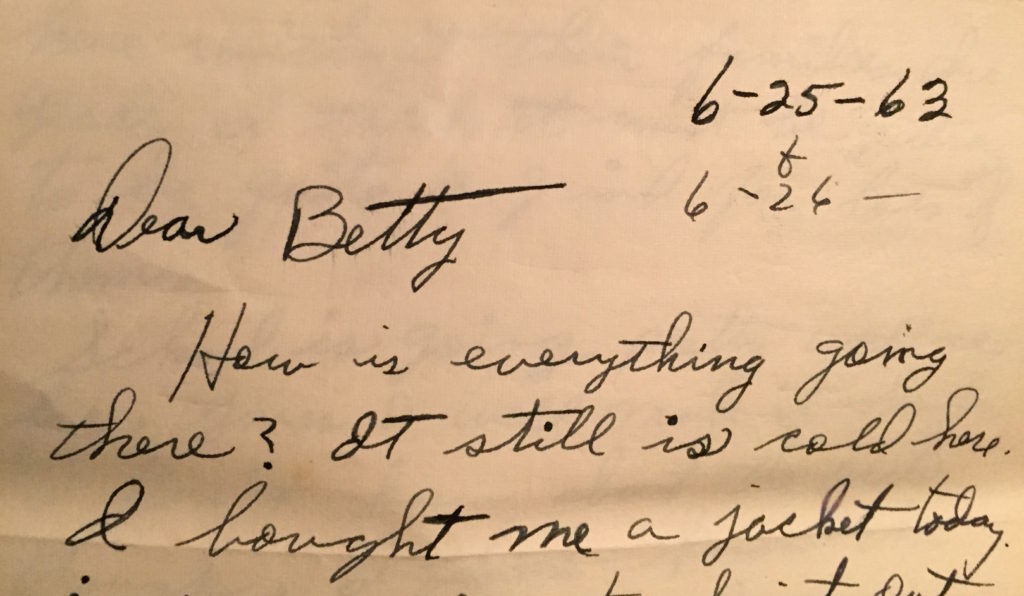 6-25-63
&
6-26 —
Dear Betty
How is everything going
there? It still is cold here.
I bought me a jacket today.